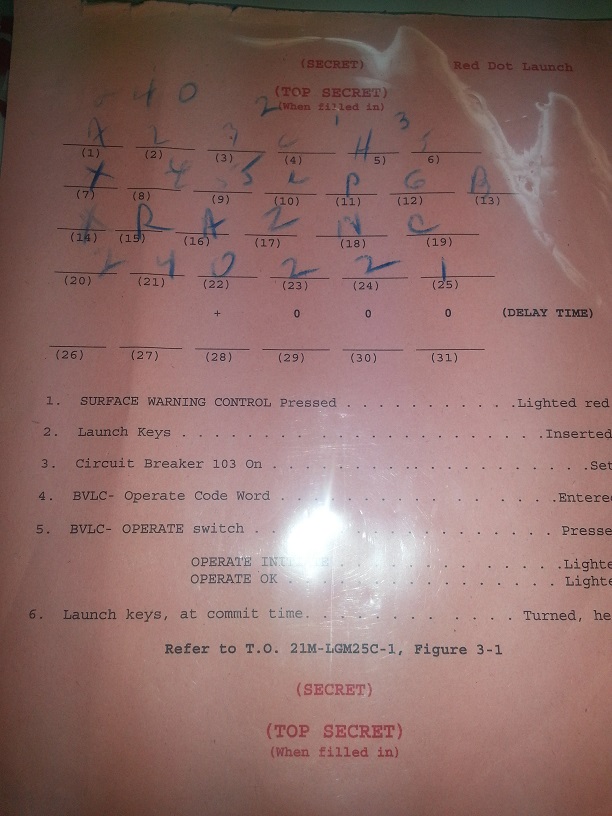 (SECRET) Red Dot Launch
(TOP SECRET)
4 0
(When filled in)
2 1 3
A 2 3 H
(1) (2) (3) (4) 5) 6)
Y 4 5 P G B
(7) (8) (9) (10) (11) (12) (13)
X R A Z N C
(14) (15) (16) (17) (18) (19)
2 4 0 2 2 1
(20) (21) (22) (23) (24) (25)
+ 0 0 0 (DELAY TIME)
(26) (27) (28) (29) (30) (31)
1. SURFACE WARNING CONTROL Pressed . . . . . . . . . .Lighted red
2. Launch Keys . . . . . . . . . . . . . . . . . . . . .Inserted
3. Circuit Breaker 103 On . . . . . . . . . . . . . . . . . .Set
4. BVLC- Operate Code Word . . . . . . . . . . . . . . . .Entere
5. BVLC- OPERATE switch . . . . . . . . . . . . . . . . . Presse
OPERATE . . . . . . . . . . . . .Lighte
OPERATE OK . . . . . . . . . . . . . . . Lighte
6. Launch keys, at commit time. . . . . . . . . . Turned, he
Refer to T.O. 21M-LGM25C-1, Figure 3-1
(SECRET)
(TOP SECRET)
(When filled in)